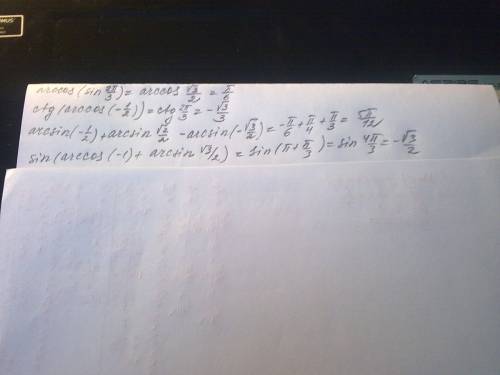 arccos(sin 2π/3) = arccos √3/2 = π/6
ctg(arccos(-1/2)) = ctg 2π/3 = -√3/3
arcsin(-1/2)+arcsin √2/2 -arcsin(-√3/2) = -π/6 + π/4 + π/3 = 5π/12
sin(arccos(-1) + arcsin √3/2) = sin(π + π/3) = sin 4π/3 = -√3/2